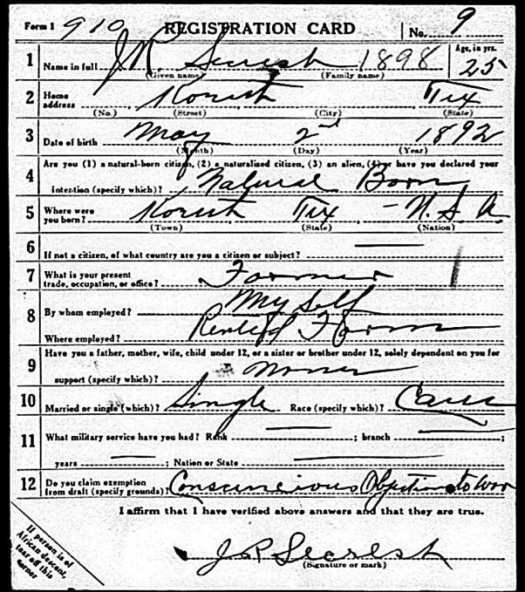 Form 1 910 REGISTRATION CARD No. 9
1 Name in full J.R. Secrest 1898 Age, in yrs. 25
(Given name) (Family name)
2 Home address Tex
(No.) (Street) (City) (State)
3 Date of birth May 2nd 1892
(Month) (Day) (Year)
4 Are you (1) a natural-born citizen, (2) a naturalized citizen, (3) an alien, (4) or have you declared your
intention (specify which)? Natural Born
5 Where were you born? Tex - U.S.A
(Town) (State) (Nation)
6 If not a citizen, of what country are you a citizen or subject?
7 What is your present trade, occupation, or office? Farmer
8 By whom employed? My self
Where employed? Rented Farm
9 Have you a father, mother, wife, child under 12, or a sister or brother under 12, solely dependent on you for
support (specify which)?
10 Married or single (which)? Single Race (specify which)? Cauc
11 What military service have you had? Rank ; branch ;
years ; Nation or State
12 Do you claim exemption from draft (specify grounds)? Conscuncious Objection to War
I affirm that I have verified above answers and that they are true.
J R Secrest
(Signature or mark)
If person is of
African descent,
tear off this
corner